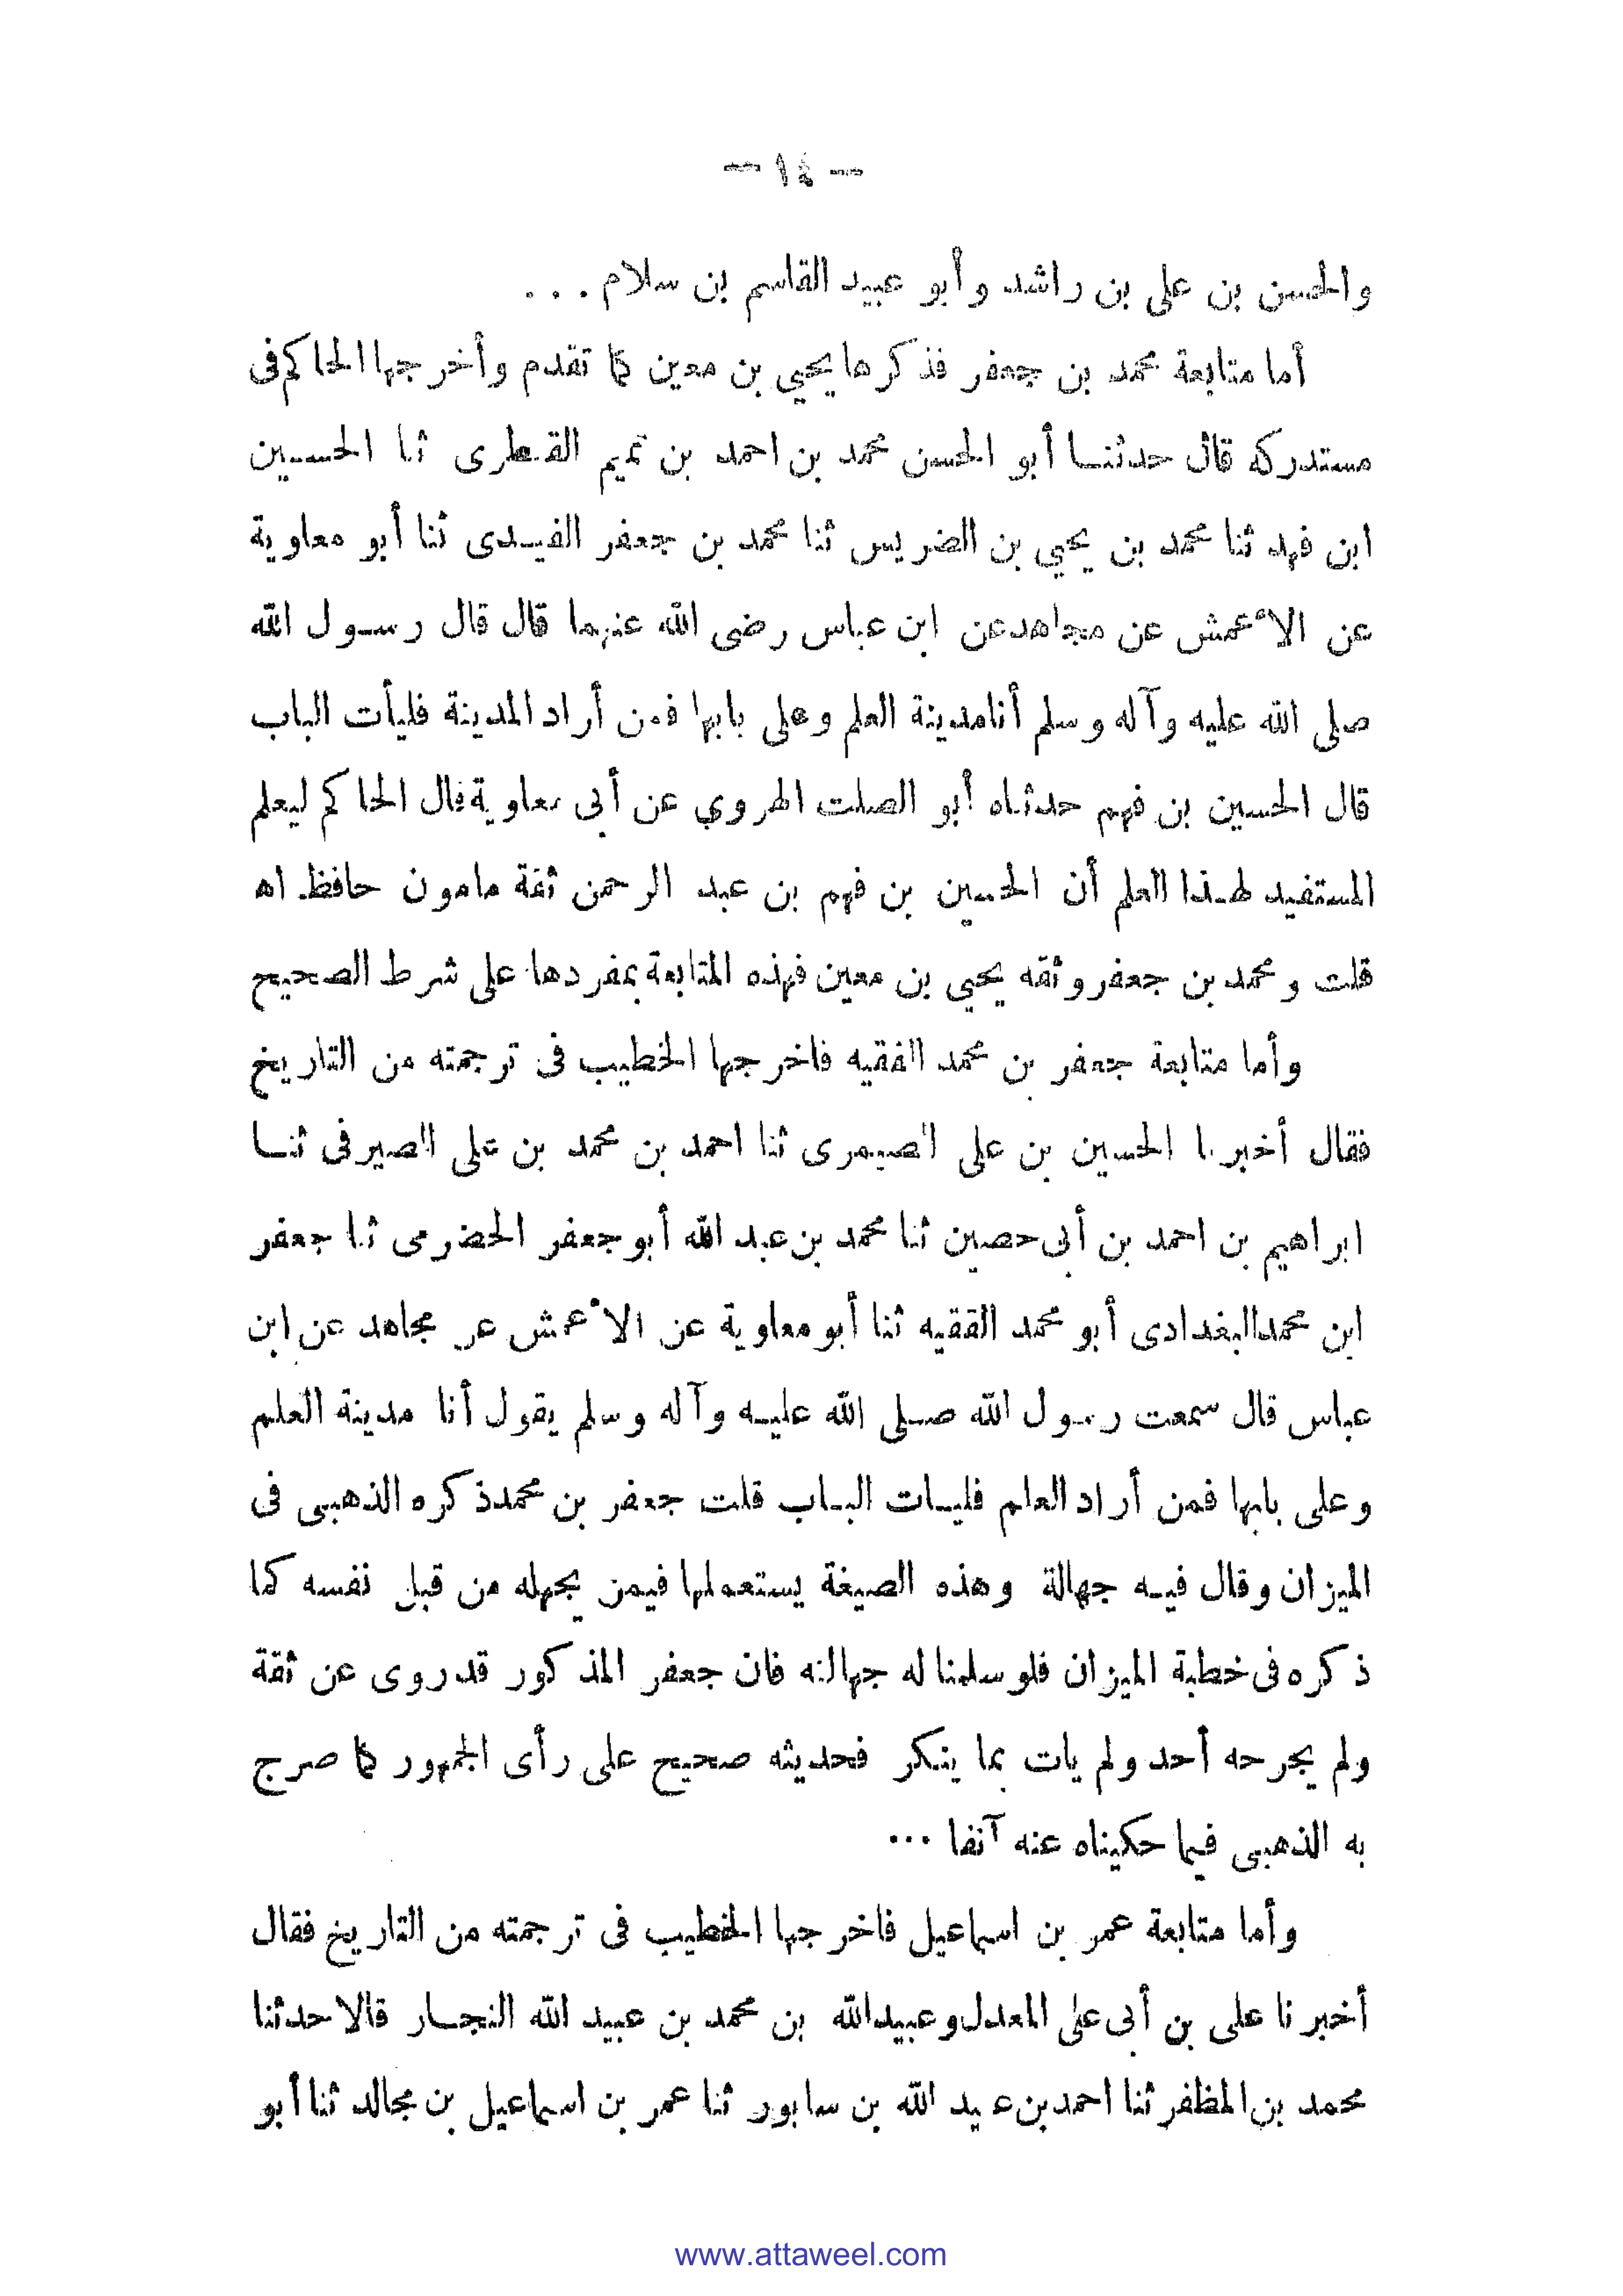 — ١٤ —
والحسن بن على بن راشد وأبو عبيد القاسم بن سلام . . .
أما متابعة محمد بن جعفر فذكرها يحيي بن معين كما تقدم وأخرجها الحاكم فى
مستدركه قال حدثنا أبو الحسن محمد بن احمد بن تميم القنطرى ثنا الحسين
ابن فهد ثنا محمد بن يحيي بن الضريس ثنا محمد بن جعفر الفيدى ثنا أبو معاوية
عن الأعمش عن مجاهد عن ابن عباس رضى الله عنهما قال قال رسول الله
صلى الله عليه وآله وسلم أنا مدينة العلم وعلى بابها فمن أراد المدينة فليأت الباب
قال الحسين بن فهم حدثناه أبو الصلت الهروي عن أبى معاوية قال الحاكم ليعلم
المستفيد لهذا العلم أن الحسين بن فهم بن عبد الرحمن ثقة مامون حافظ اه
قلت ومحمد بن جعفر وثقه يحيي بن معين فهذه المتابعة بمفردها على شرط الصحيح
وأما متابعة جعفر بن محمد الفقيه فاخرجها الخطيب فى ترجمته من التاريخ
فقال أخبرنا الحسين بن على الصيمرى ثنا احمد بن محمد بن على الصيرفى ثنا
ابراهيم بن احمد بن أبى حصين ثنا محمد بن عبد الله أبو جعفر الحضرمى ثنا جعفر
ابن محمد البغدادى أبو محمد الفقيه ثنا أبو معاوية عن الأعمش عن مجاهد عن ابن
عباس قال سمعت رسول الله صلى الله عليه وآله وسلم يقول أنا مدينة العلم
وعلى بابها فمن أراد العلم فليات الباب قلت جعفر بن محمد ذكره الذهبى فى
الميزان وقال فيه جهالة وهذه الصيغة يستعملها فيمن يجهله من قبل نفسه كما
ذكره فى خطبة الميزان فلو سلمنا له جهالته فان جعفر المذكور قد روى عن ثقة
ولم يجرحه أحد ولم يات بما ينكر فحديثه صحيح على رأى الجمهور كما صرح
به الذهبى فيما حكيناه عنه آنفا ...
وأما متابعة عمر بن اسماعيل فاخرجها الخطيب فى ترجمته من التاريخ فقال
أخبرنا على بن أبى على المعدل وعبيدالله بن محمد بن عبيد الله النجار قالا حدثنا
محمد بن المظفر ثنا احمد بن عبيد الله بن سابور ثنا عمر بن اسماعيل بن مجالد ثنا أبو
www.attaweel.com